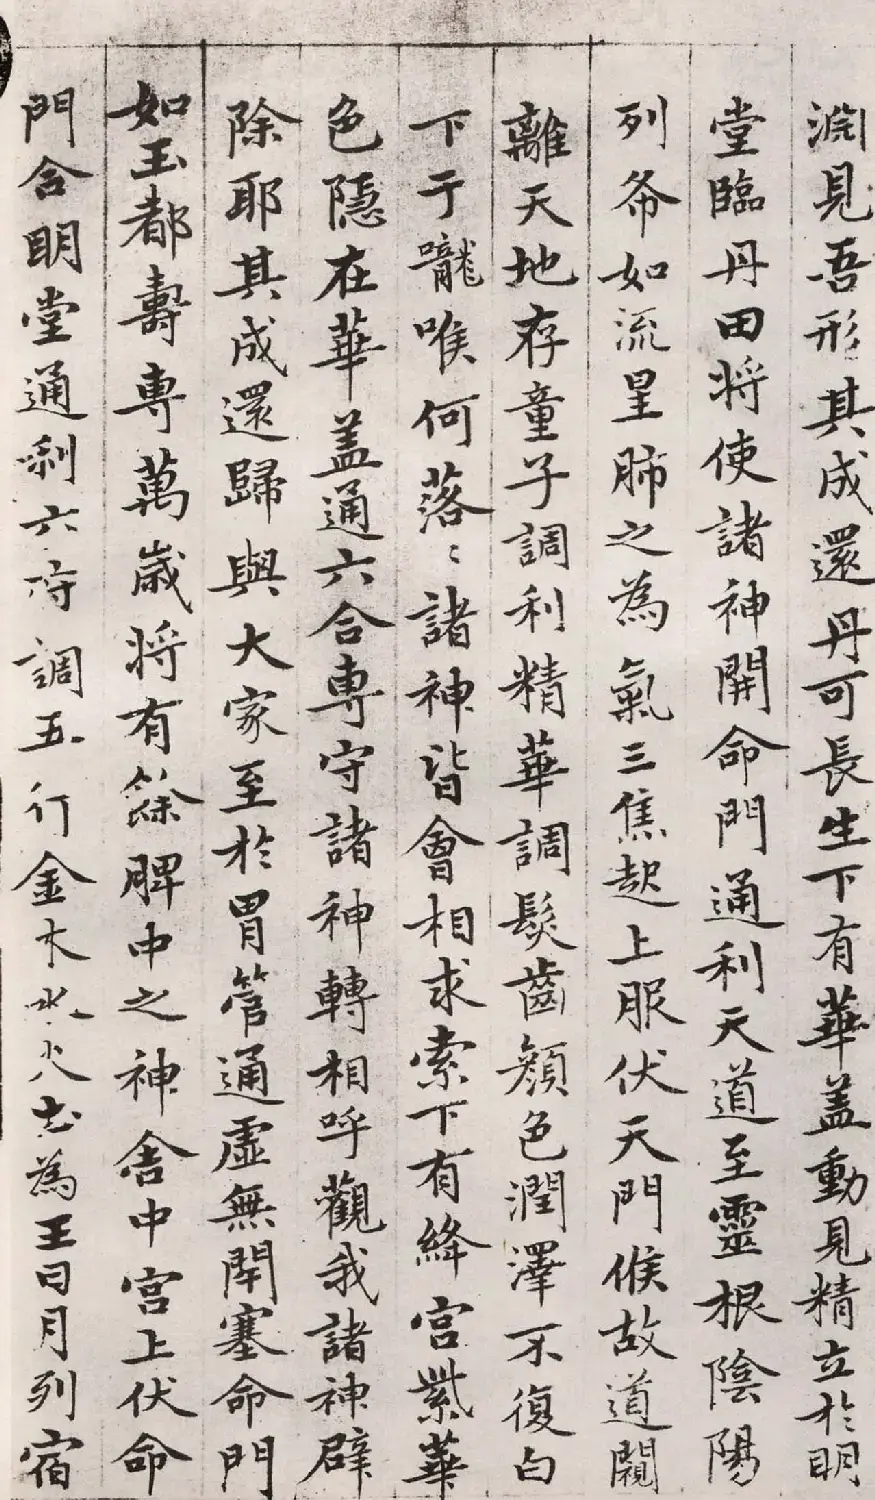 淵見吾形其成還丹可長生下有華盖動見精立於明
堂臨丹田将使諸神開命門通利天道至靈根陰陽
列布如流星肺之為氣三焦起上服伏天門候故道闚
離天地存童子調利精華調髮齒顔色潤澤不復白
下于嚨喉何落〻諸神皆會相求索下有絳宮紫華
色隱在華盖通六合専守諸神轉相呼觀我諸神辟
除耶其成還歸與大家至於胃管通虛無閉塞命門
如玉都壽専萬歲将有餘脾中之神舎中宮上伏命
門合明堂通利六府調五行金木水火土為王日月列宿